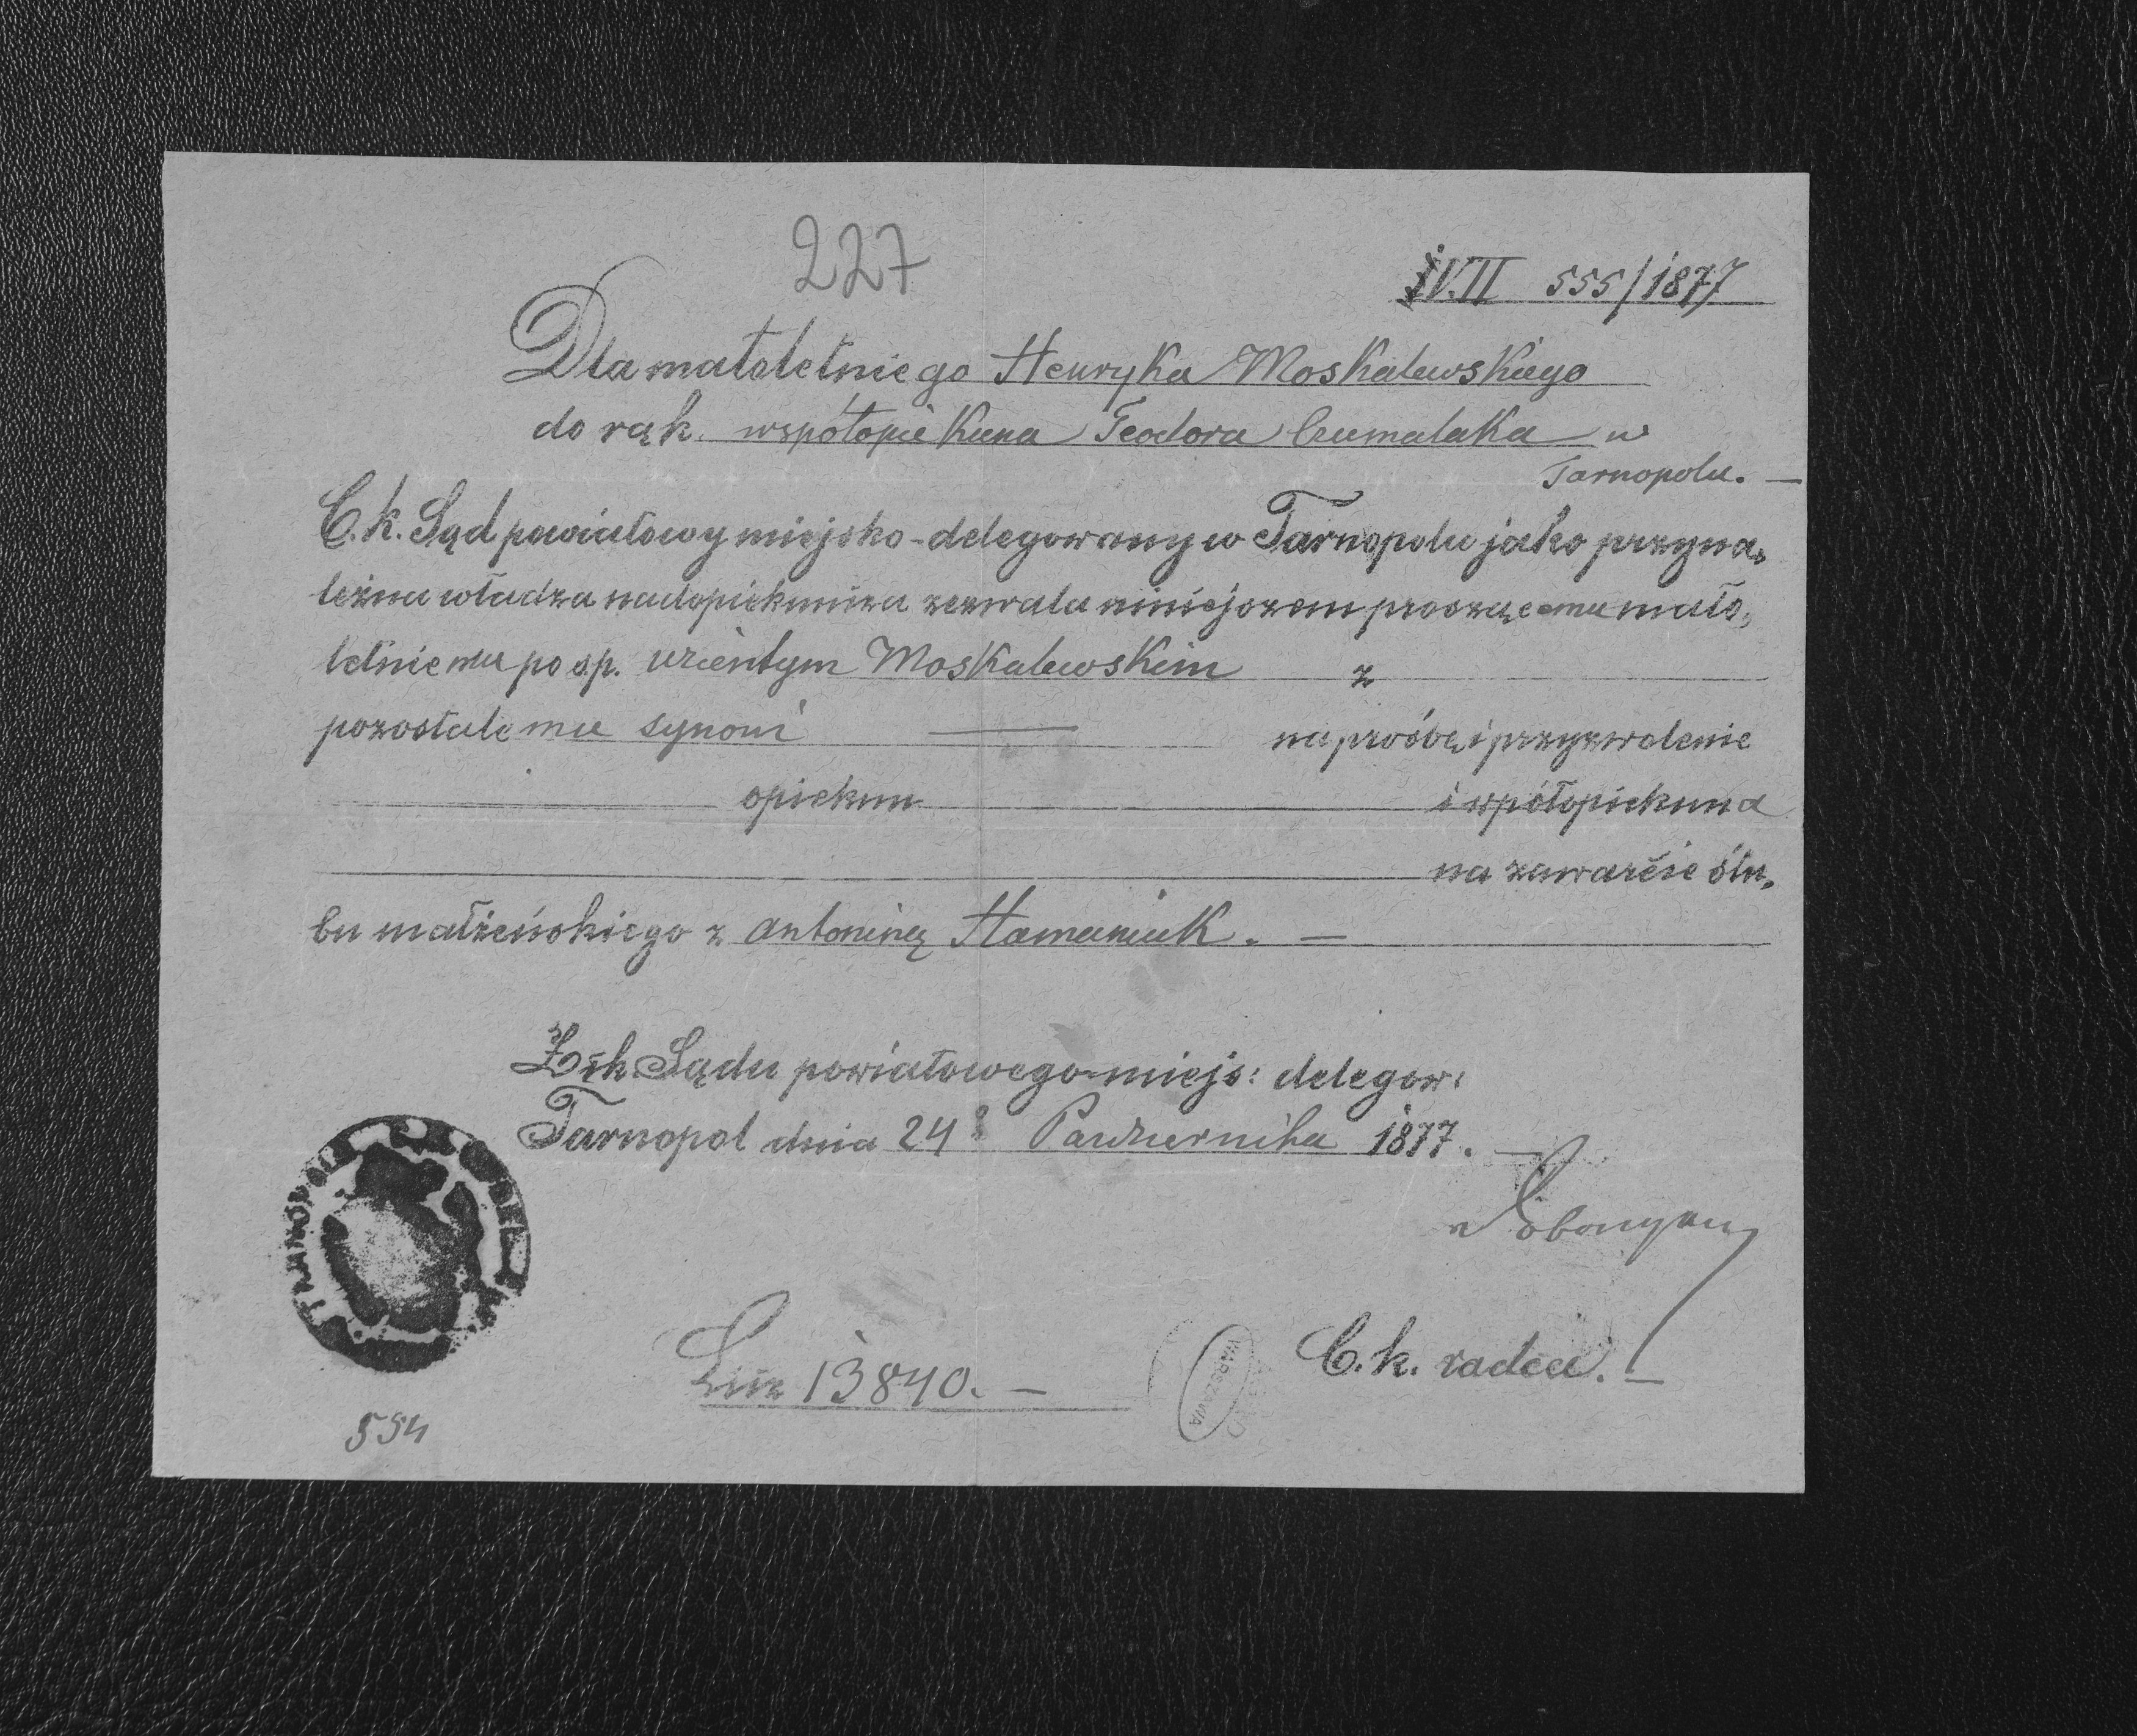 227
IV.II 555/1877
Dla małoletniego Henryka Moskalewskiego
do rąk współopiekuna Teodora Czumalaka w
Tarnopolu. —
C. k. Sąd powiatowy miejsko-delegowany w Tarnopolu jako przyna„
leżna władza nadopiekuńcza zezwala niniejszem proszącemu mało„
letniemu po ś.p. Wientym Moskalewskim z
pozostałemu synowi — na prośbę i przyzwolenie
opiekun i współopiekuna
na zawarcie ślu„
bu małżeńskiego z Antoniną Hamaniuk. —
Z c.k. Sądu powiatowego-miejs: delegow:
Tarnopol dnia 24º Października 1877. —
C. k. radca. —
Licz 13840. —
WARSZAWA
TARNOPOL
554